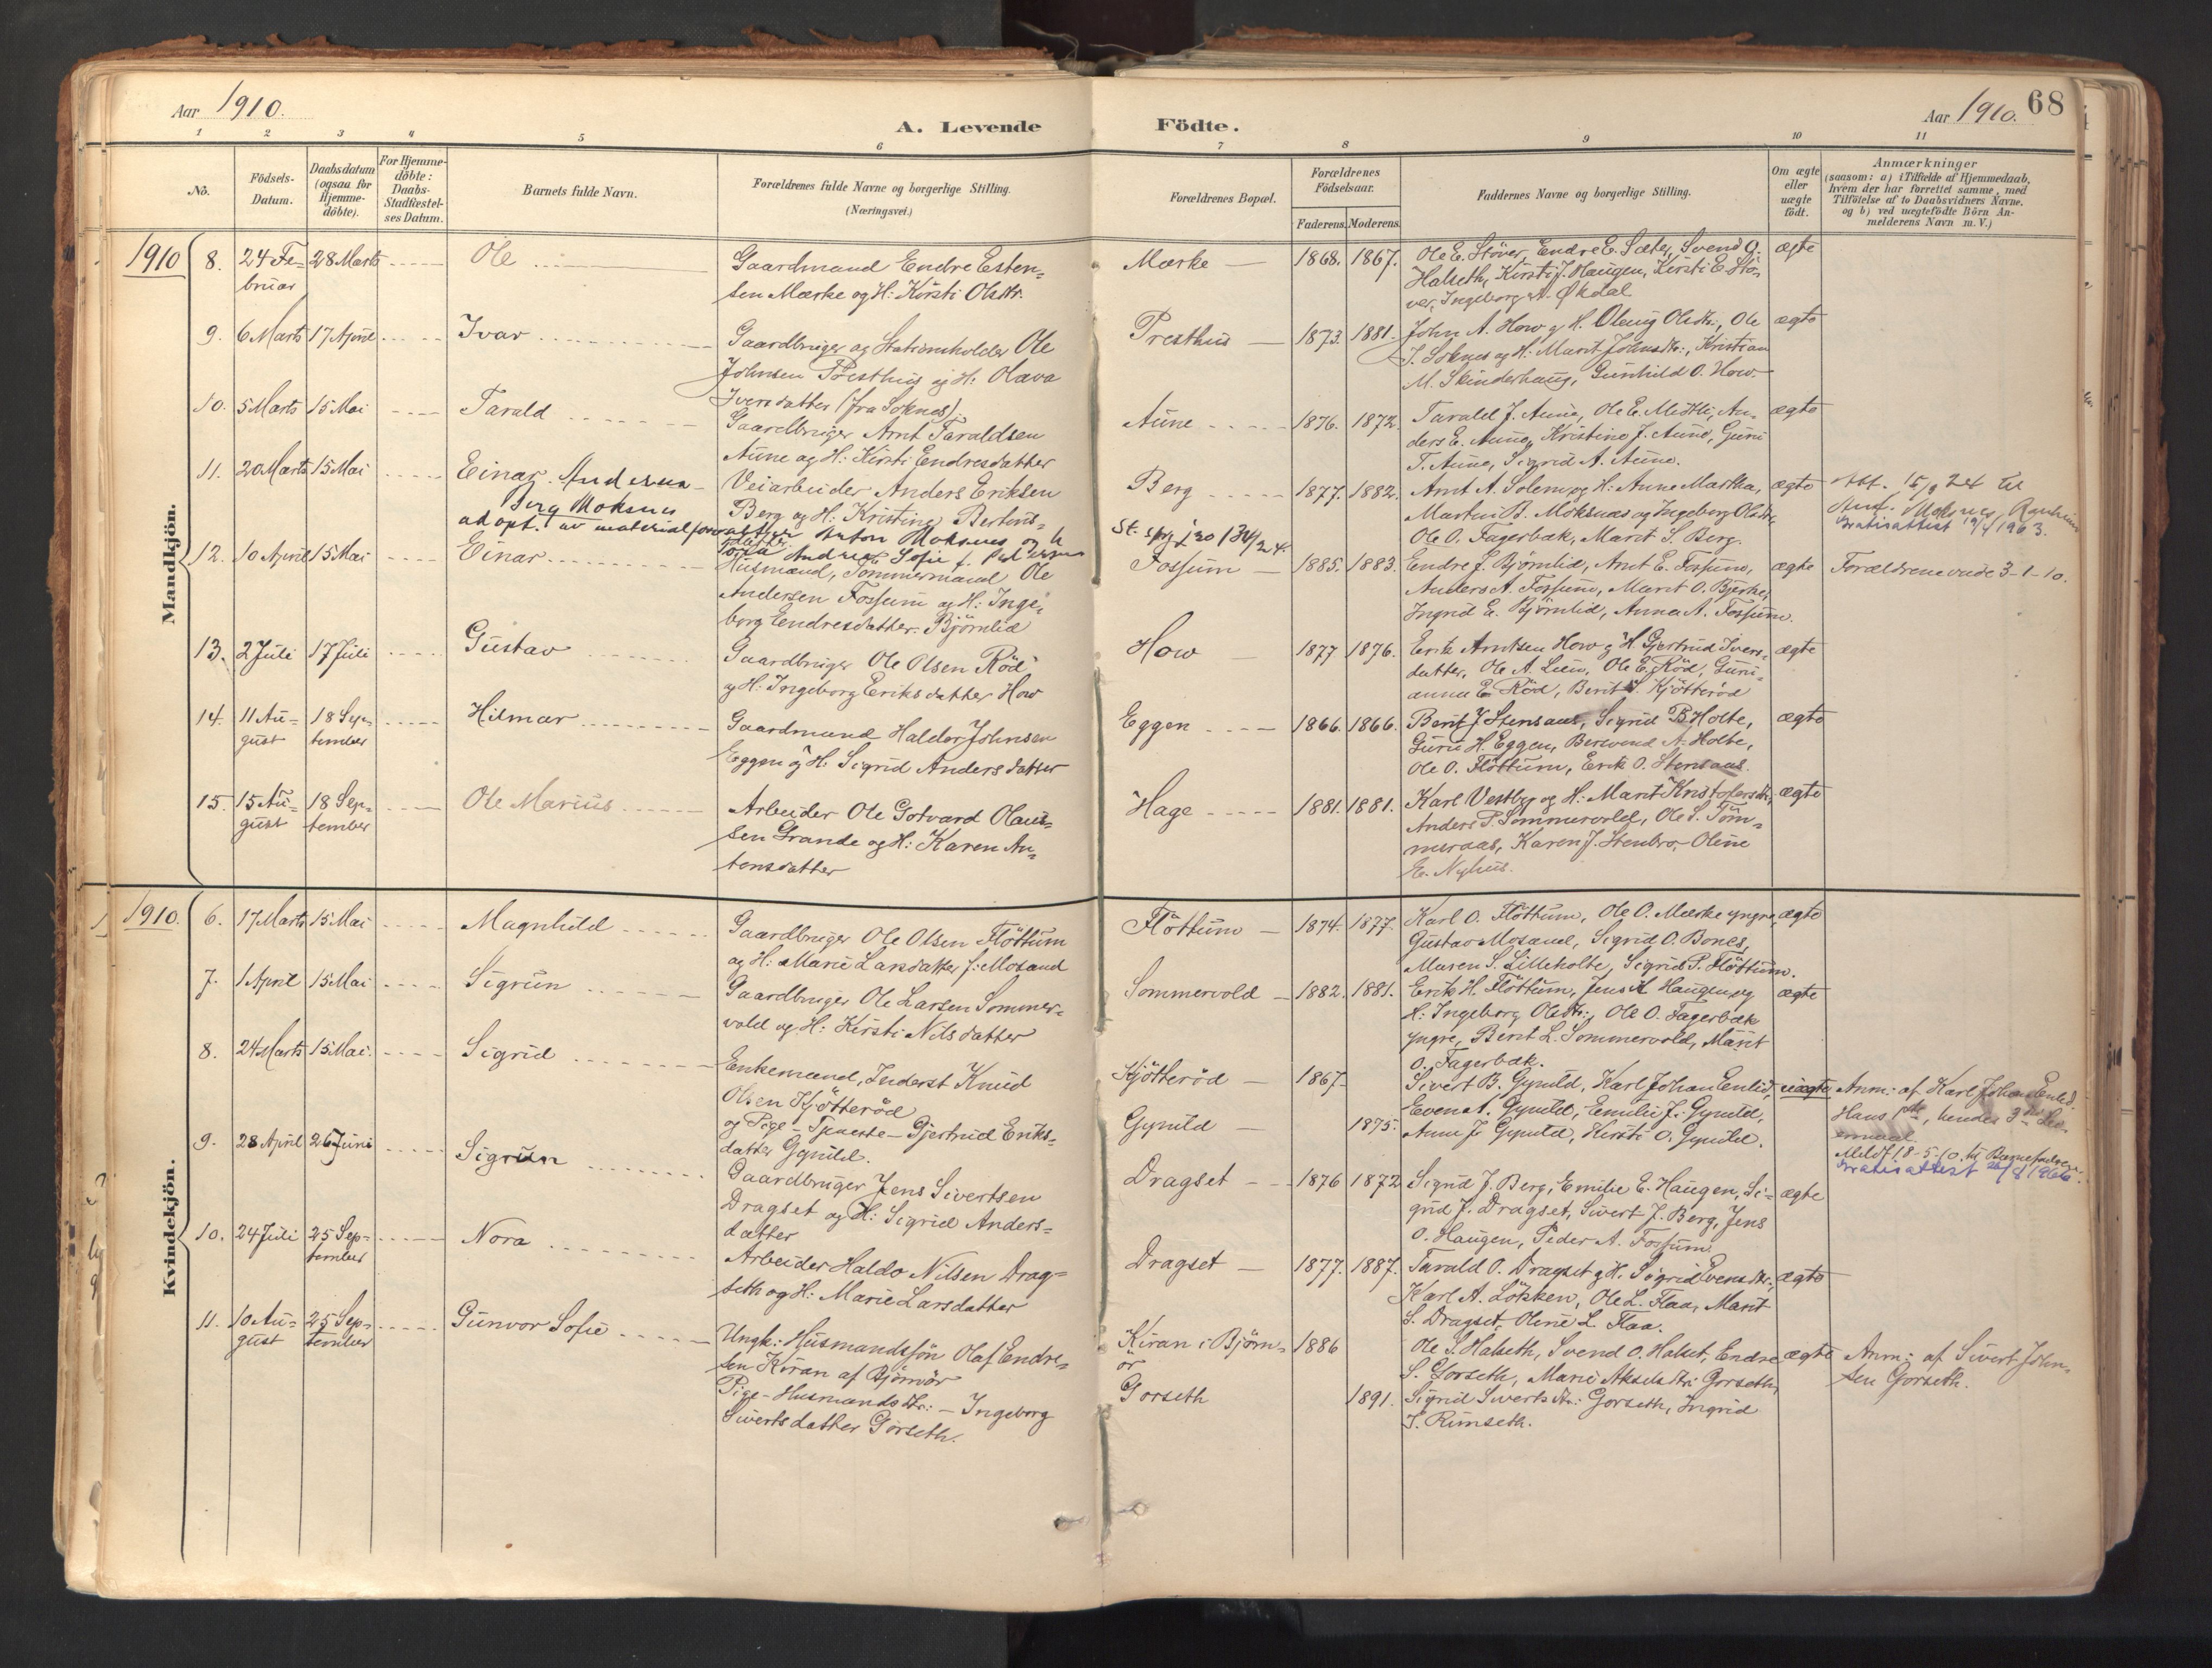 Aar 1910.
A. Levende Födte.
Aar 1910. 68
1 2 3 4 5 6 7 8 9 10 11
No.
Födsels-Datum.
Daabsdatum (ogsaa for Hjemme-döbte).
For Hjemme-döbte: Daabs-Stadfæstel-ses Datum.
Barnets fulde Navn.
Forældrenes fulde Navne og borgerlige Stilling.
(Næringsvei.)
Forældrenes Bopæl.
Forældrenes Födselsaar.
Faderens. Moderens.
Faddernes Navne og borgerlige Stilling.
Om ægte eller uægte födt.
Anmærkninger
(saasom: a) i Tilfælde af Hjemmedaab,
hvem der har forrettet samme, med
Tilföielse af to Daabsvidners Navne.
og b) ved uægtefödte Börn An-
melderens Navn m. V.)
Mandkjön.
1910 8. 24 Fe-
bruar
28 Marts
Ole
Gaardmand Endre Esten-
sen Mærke og H: Kirsti Olsdtr.
Mærke
1868. 1867.
Ole E. Stöver, Endre E. Sæter, Svend O.
Halseth, Kirsti J. Haugen, Kirsti E. Stö-
ver, Ingeborg A. Økdal
ægte
9. 6 Marts 17 April
Ivar
Gaardbruger og Stationsholder Ole
Johnsen Presthus og H: Olava
Iversdatter (fra Soknes).
Presthus
1873. 1881.
John A. How og H. Oleug Olsdtr., Ole
J. Soknes og H: Marit Johnsdtr:, Kristian
M. Skinderhaug, Gunhild O. How.
ægte
10. 5 Marts 15 Mai
Tarald
Gaardbruger Arnt Taraldsen
Aune og H: Kirsti Endresdatter
Aune
1876. 1872.
Tarald J. Aune, Ole E. Midtli, An-
ders E. Aune, Kristine J. Aune, Guri
T. Aune, Sigrid A. Aune.
ægte
11. 20 Marts 15 Mai
Einar. Andersen
Berg Moksnes
adopt. av materialforvalter Anton Moksnes og h
Andrea Sofie f. Pedersen
Veiarbeider Anders Eriksen
Berg og H: Kristine Bertens-
datter
Berg
St. spj. j 20 134/24.
1877. 1882.
Arnt A. Solem og H: Anne Martha,
Martin B. Moksnæs og Ingeborg Olsdtr,
Ole O. Fagerbæk, Marit S. Berg.
ægte
Att. 15/9 24 til
Ant. Moksnes, Ranheim
Gratisattest 19/4 1963.
12. 10 April 15 Mai
Einar
Husmand, Tömmermand Ole
Andersen Fossum og H: Inge-
borg Endresdatter Björnlid
Fossum
1885. 1883.
Endre J. Björnlid, Arnt E. Fossum,
Anders A. Fossum, Marit O. Bjerke,
Ingrid E. Björnlid, Anna A. Fossum.
ægte
Forældrene viede 3-1-10.
13. 2 Juli 17 Juli
Gustav
Gaardbruger Ole Olsen Röd
og H: Ingeborg Eriksdatter How
How
1877 1876.
Erik Arntsen How og H Gjertrud Ivers-
datter, Ole A. Lien, Ole E. Röd, Guri-
anna E. Röd, Berit S. Kjötteröd
ægte
14. 11 Au-
gust
18 Sep-
tember
Hilmar
Gaardmand Haldor Johnsen
Eggen og H. Sigrid Andersdatter
Eggen
1866. 1866.
Berit J Stensaas, Sigrid B. Holte,
Guru H. Eggen, Bersvend A. Holte,
Ole O. Flöttum, Erik O. Stensaas.
ægte
15. 15 Au-
gust
18 Sep-
tember
Ole Marius
Arbeider Ole Gotvard Olaus-
sen Grande og H: Karen An-
tonsdatter
Hage
1881. 1881.
Karl Vestby og H: Marit Kristofersdtr,
Anders P. Sommervold, Ole S. Töm-
meraas, Karen J. Stenbro, Oline
E. Nyhus.
ægte
Kvindekjön.
1910. 6. 17 Marts 15 Mai
Magnhild
Gaardbruger Ole Olsen Flöttum
og H: Marie Larsdatter f: Mosand
Flöttum
1874. 1877.
Karl O. Flöttum, Ole O. Mærke yngre,
Gustav Mosand, Sigrid O. Bones,
Maren S. Lilleholte, Sigrid P. Flöttum.
ægte
7. 1 April 15 Mai
Sigrun
Gaardbruger Ole Larsen Sommer-
vold og H: Kirsti Nilsdatter
Sommervold
1882. 1881.
Erik H. Flöttum, Jens A Haugen og
H: Ingeborg Olsdtr:, Ole O. Fagerbæk
yngre, Berit L. Sommervold, Marit
O. Fagerbæk.
ægte
8. 24 Marts 15 Mai.
Sigrid
Enkemand, Inderst Knud
Olsen Kjötteröd
og Pige - Tjeneste - Gjertrud Eriks-
datter Gynild.
Kjötteröd
Gynild
1867
1875.
Sivert B. Gynild, Karl Johan Eenlid,
Even A. Gynild, Emilie J. Gynild,
Anne J. Gynild, Kirsti O. Gynild.
uægte
Anm: af Karl Johan Eenlid.
Hans , hendes 3die Lei-
ermaal.
Meldt 18-5-10 til
Gratisattest 26/8 1966.
9. 28 April 26 Juni
Sigrun
Gaardbruger Jens Sivertsen
Dragset og H: Sigrid Anders-
datter
Dragset
1876 1872
Sigrid J. Berg, Emilie E. Haugen, Si-
grid J. Dragset, Sivert J. Berg, Jens
O. Haugen, Peder A. Fossum.
ægte
10. 24 Juli 25 Sep-
tember
Nora
Arbeider Haldo Nilsen Drag-
seth og H: Marie Larsdatter
Dragset
1877. 1887.
Tarald O. Dragset og H. Sigrid Evensdtr.,
Karl A. Lökken, Ole L. Flaa, Marit
S. Dragset, Oline L. Flaa.
ægte
11. 10 Au-
gust
25 Sep-
tember
Gunvor Sofie
Ungk: Husmandssön Olaf Endre-
sen Kiran af Björnör
Pige - Husmandsdtr: - Ingeborg
Sivertsdatter Gorseth.
Kiran i Björn-
ör
Gorseth
1886
1891.
Ole S. Halseth, Svend O. Halset, Endre
S. Gorseth, Marie Akselsdtr: Gorseth,
Sigrid Sivertsdtr: Gorseth, Ingrid
J. Rimseth.
ægte
Anm: af Sivert John-
sen Gorseth.